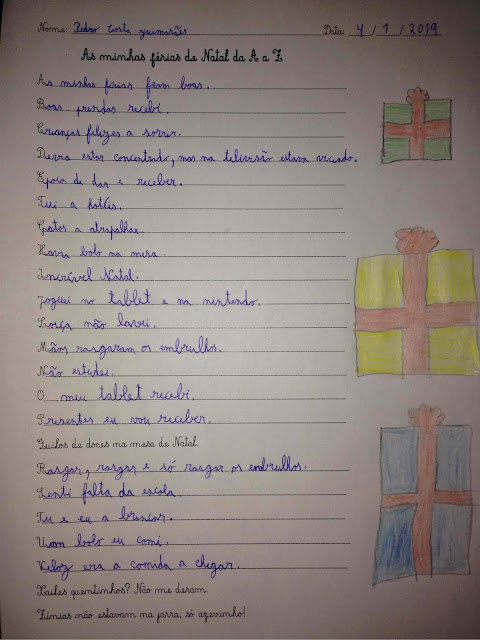 Nome: Pedro Costa Guimarães Data: 4 / 1 / 2019
As minhas férias de Natal da A a Z
As minhas férias foram boas.
Boas prendas recebi.
Crianças felizes a sorrir.
Devia estar concentrado, mas na televisão estava viciado.
Época de dar e receber.
Fui a hotéis.
Gatos a atrapalhar.
Havia bolo na mesa.
Incrível Natal.
Joguei no tablet e na nintendo.
Loiça não lavei.
Mãos rasgaram os embrulhos.
Não estudei.
O meu tablet recebi.
Presentes eu vou receber.
Quilos de doces na mesa de Natal.
Rasgar, rasgar e só rasgar os embrulhos.
Senti falta da escola.
Tu e eu a brincar.
Um bolo eu comi.
Veloz era a comida a chegar.
Xailes quentinhos? Não me deram.
Zínias não estavam na jarra, só azevinho!